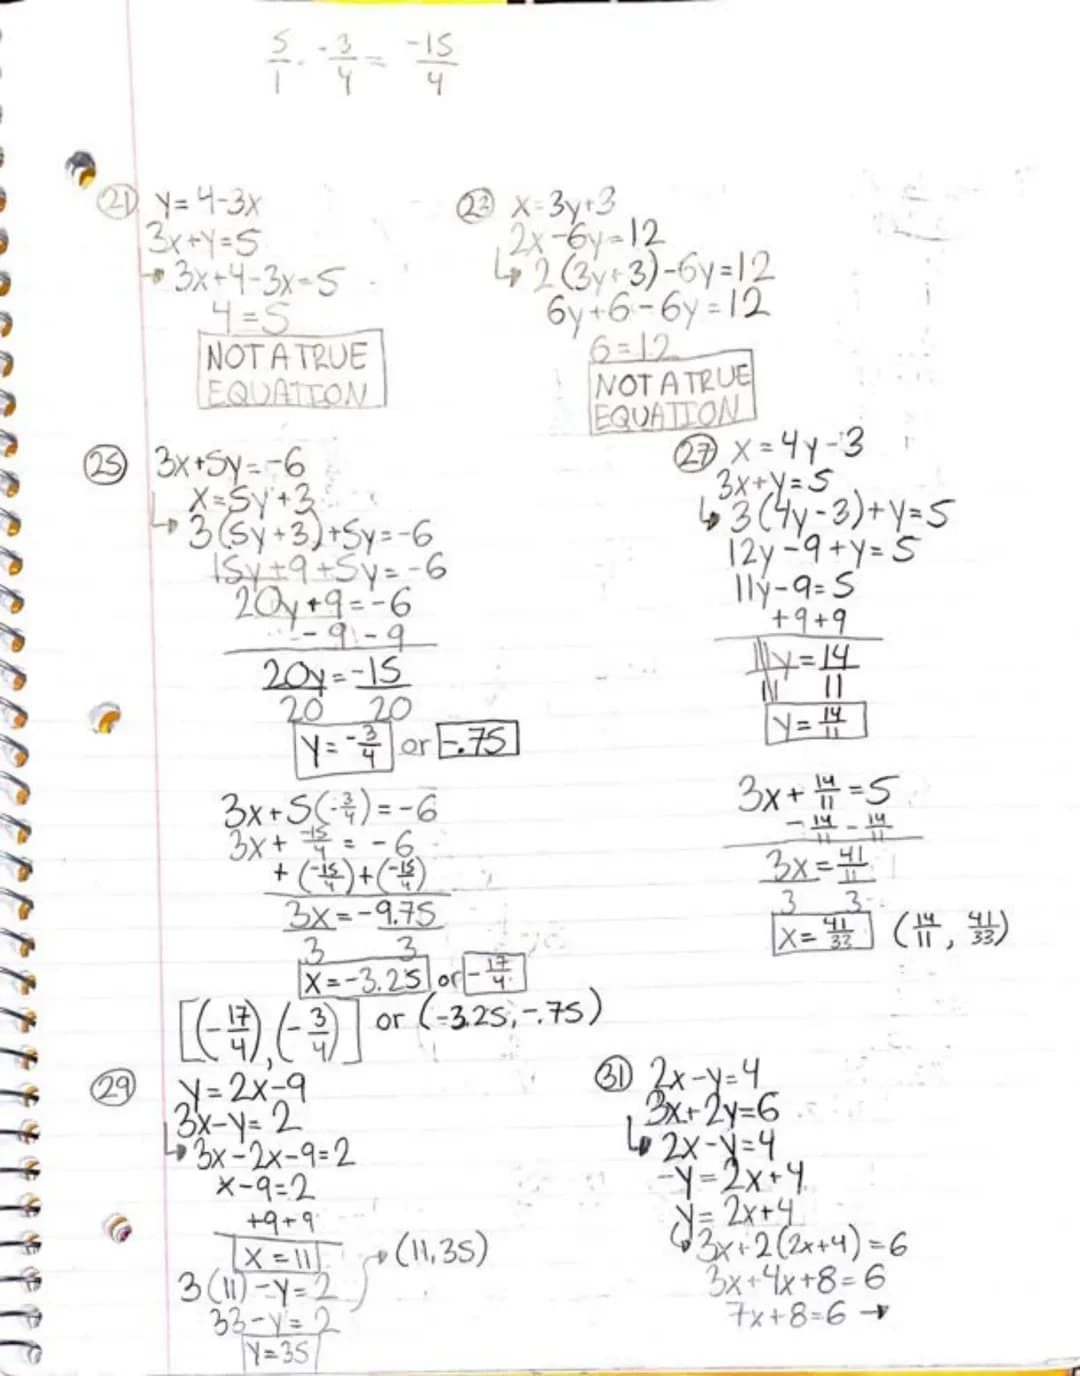 5/1 · -3/4 = -15/4
(21) y=4-3x
3x+y=5
→ 3x+4-3x=5
4=5
NOT A TRUE
EQUATION
(23) x=3y+3
2x-6y=12
↳ 2(3y+3)-6y=12
6y+6-6y=12
6=12
NOT A TRUE
EQUATION
(25) 3x+5y=-6
x=5y+3
↳ 3(5y+3)+5y=-6
15y+9+5y=-6
20y+9=-6
-9 -9
20y=-15
20 20
y=-3/4 or -.75
3x+5(-3/4)=-6
3x+ -15/4 = -6
+(-15/4)+(-15/4)
3x=-9.75
3 3
x=-3.25 or -17/4
[(-17/4),(-3/4)] or (-3.25,-.75)
(27) x=4y-3
3x+y=5
↳ 3(4y-3)+y=5
12y-9+y=5
11y-9=5
+9+9
11y=14
11 11
y=14/11
3x+14/11=5
-14/11 -14/11
3x=41/11
3 3
x=41/33 (14/11, 41/33)
(29) y=2x-9
3x-y=2
↳ 3x-2x-9=2
x-9=2
+9+9
x=11 → (11,35)
3(11)-y=2
33-y=2
y=35
(31) 2x-y=4
3x+2y=6
↳ 2x-y=4
-y=2x+4
y=2x+4
↳ 3x+2(2x+4)=6
3x+4x+8=6
7x+8=6 →